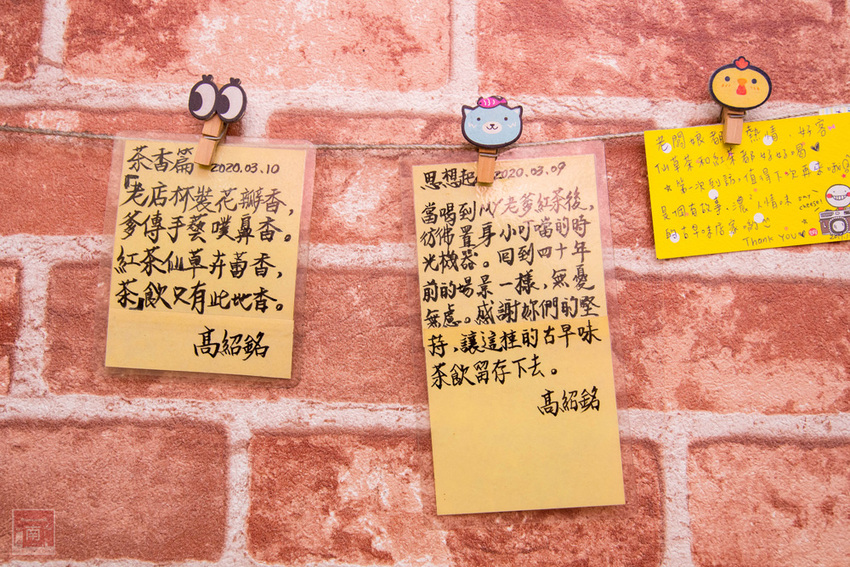 茶香篇 2020.03.10
「老店杯裝花瓣香，
爹傳手藝噗鼻香。
紅茶仙草卉薔香，
茶」飲只有此地香。
高紹銘
思想起 2020.03.09
當喝到My老爹紅茶後，
彷彿置身小叮噹的時
光機器。回到四十年
前的場景一樣，無憂
無慮。感謝妳們的堅
持，讓這往的古早味
茶飲留存下去。
高紹銘
老闆娘都熱情、好客
仙草茶和紅茶都好好喝
第一次到訪，值得下次再
是個有故事、濃人情味
的古早味店家
Thank You
南